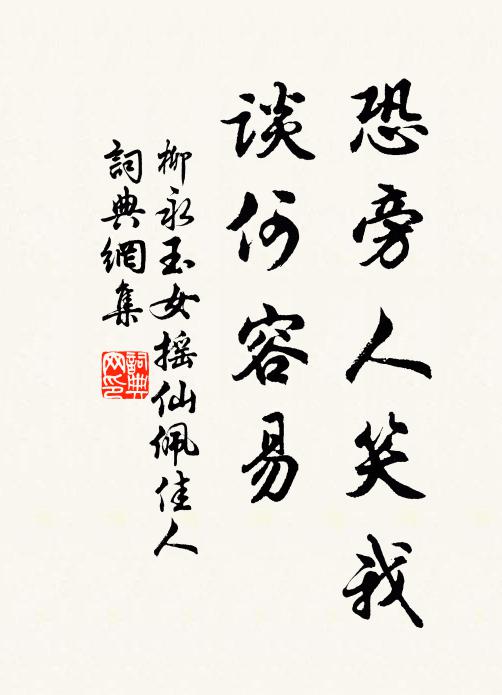 恐旁人笑我
談何容易
柳永玉女摇仙佩佳人
詞典網集
詞典网印